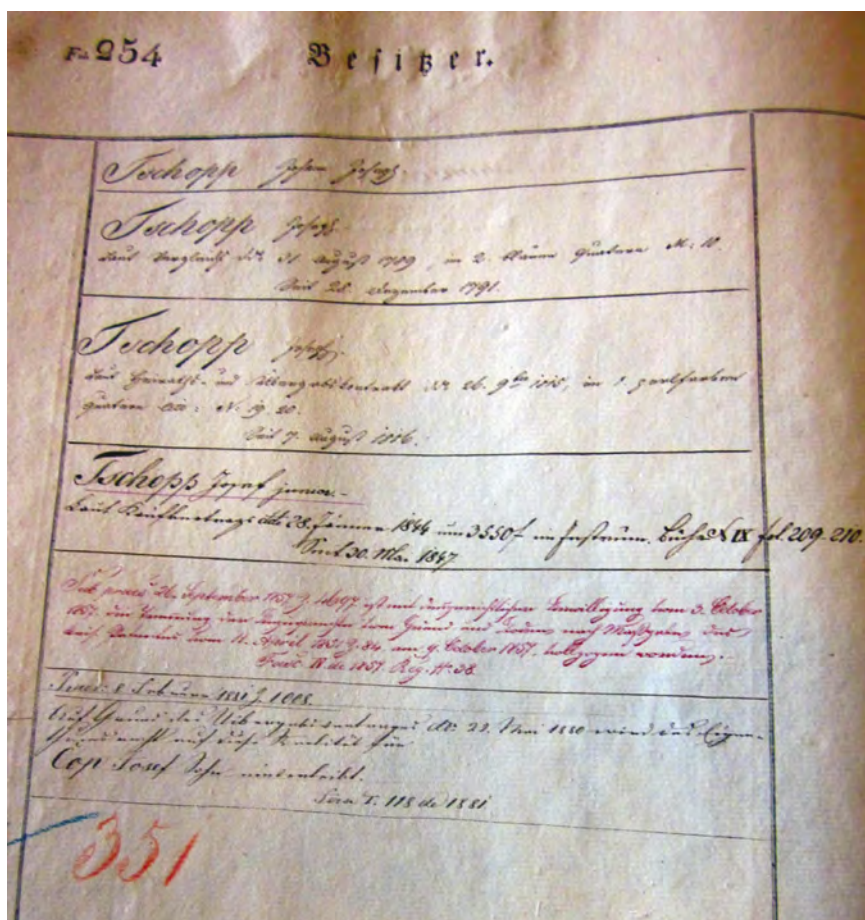 Fol. 254 Besitzer.
Tschopp Johan Joseph
Tschopp Joseph
Laut Vergleichs ddt 31 August 1789, in 2. blauen Quatern No: 10.
Seit 28. Dezember 1791.
Tschopp Joseph
Laut Heiraths- und Übergabskontrakt ddt 26. 9ber 1815, in
Quatern No: 19. 20.
Seit 7. August 1816.
Tschopp Josef junior.
Laut Kaufvertrags ddto 28. Jänner 1844 um 3550f im Instrum. Buche N IX fol. 209-210.
Seit 30. Mai 1847
September 1857 Z. ist mit Bewilligung vom 3. October
1857 die Trennung der vom Grund und Boden nach Maßgabe des
kais. Patentes vom 11. April 1851 Z. 84 am 9. October 1857 vollzogen worden.
de 1857. Reg. No 38.
Praes: 8. Februar 1881 Z. 1008.
Auf Grund des Uibergabsvertrages dt. 22. Mai 1880 wird das Eigen-
auf diese Realität für
Čop Josef Sohn einverleibt.
T. 118 de 1881
351